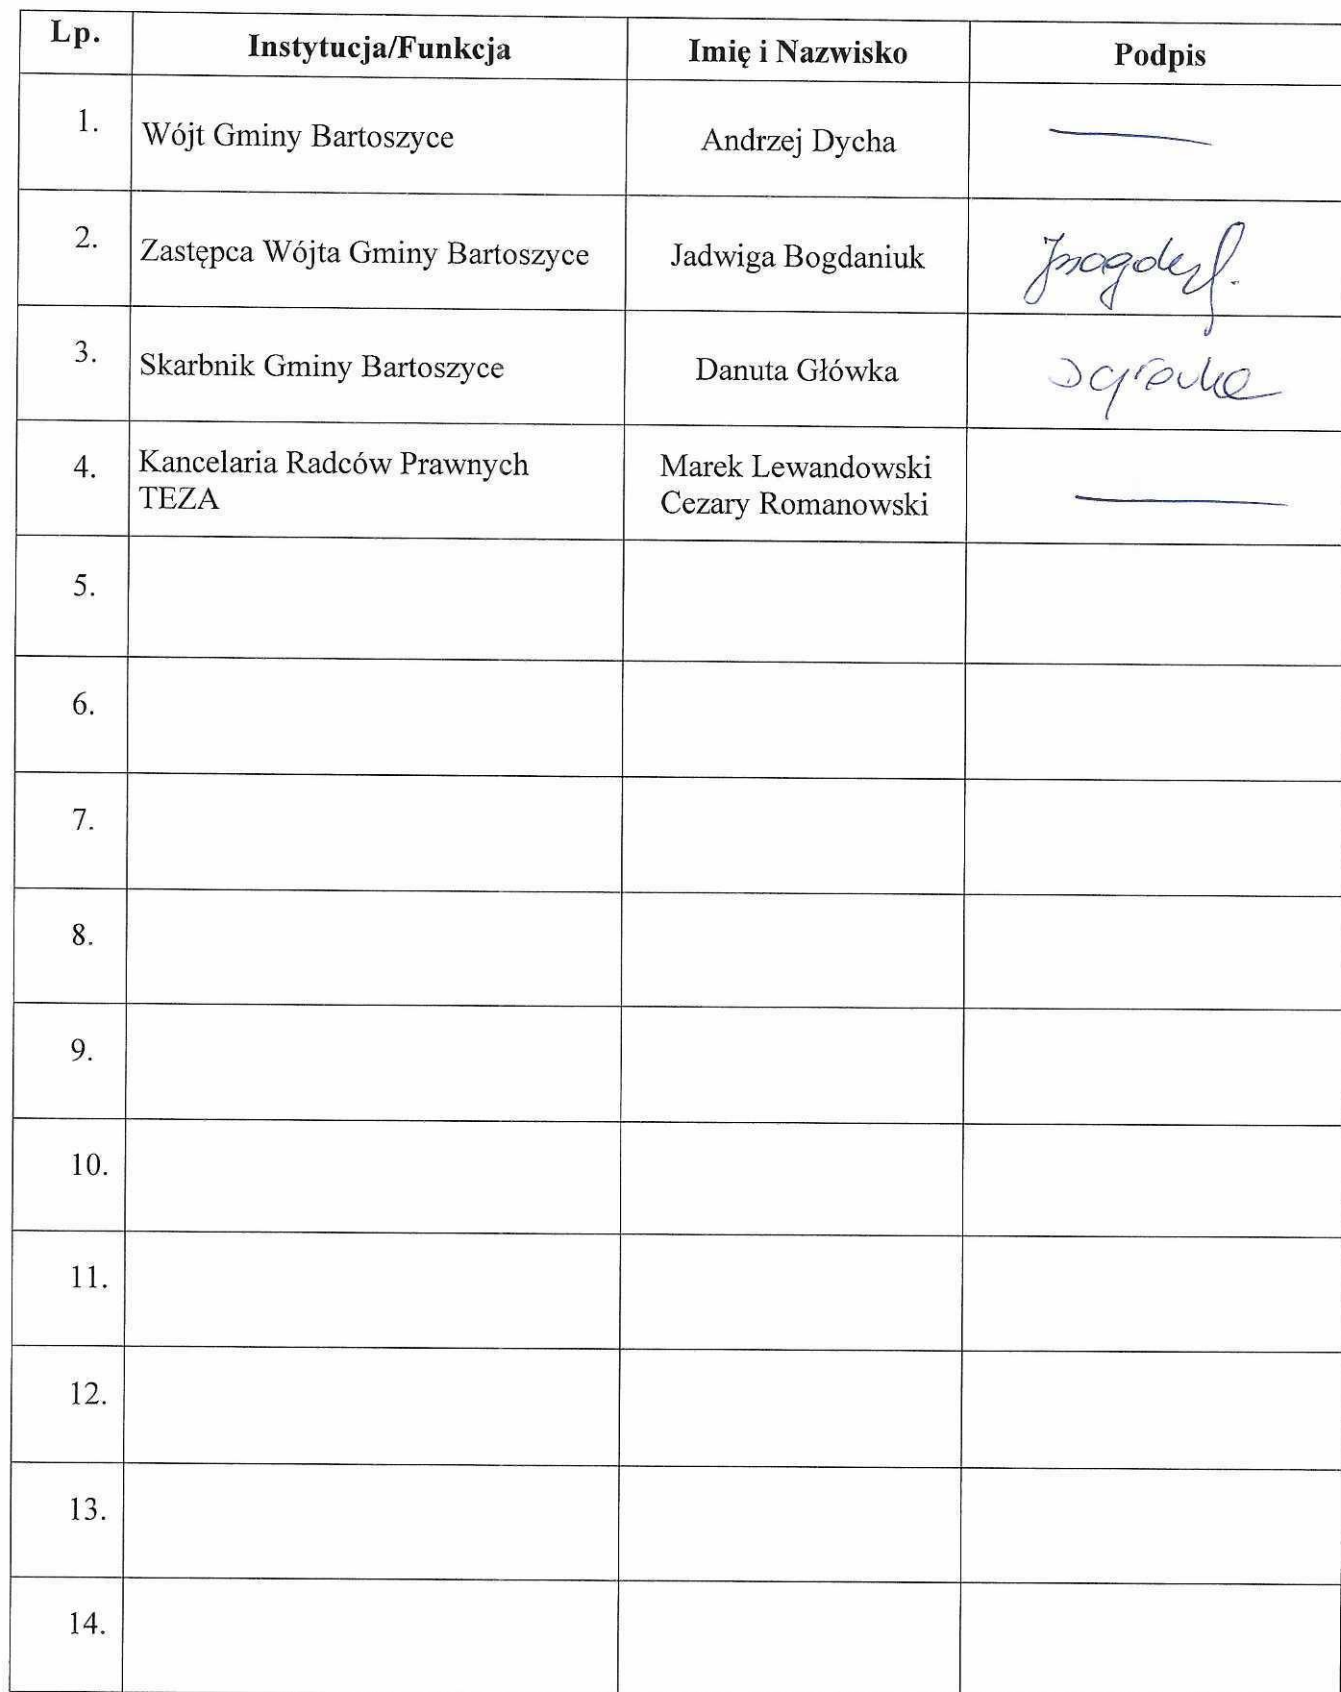 Lp. Instytucja/Funkcja Imię i Nazwisko Podpis
1. Wójt Gminy Bartoszyce Andrzej Dycha
2. Zastępca Wójta Gminy Bartoszyce Jadwiga Bogdaniuk
3. Skarbnik Gminy Bartoszyce Danuta Główka
4. Kancelaria Radców Prawnych Marek Lewandowski
TEZA Cezary Romanowski
5.
6.
7.
8.
9.
10.
11.
12.
13.
14.